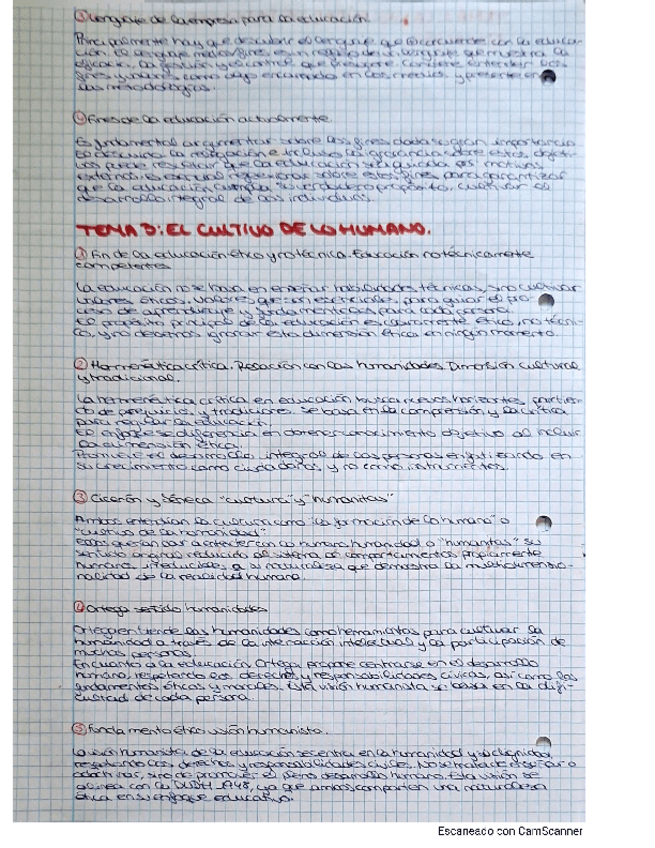 ③ Lenguaje de la empresa para la educación.
Principalmente hay que descubrir el lenguaje que con la educa-
ción. El lenguaje
educación, la gestión y el control que Conviene entender los
fines y valores como algo encarnado en los medios, y presente en
las metodologías.
④ Fines de la educación actualmente.
Es fundamental argumentar sobre los fines dada su gran importancia
El descuido, la resignación e incluso la ignorancia sobre estos objeti-
vos puede resultar que la educación sea guiada por motivos
externos. Es crucial reflexionar sobre estos fines para garantizar
que la educación cumpla su verdadero propósito, cultivar el
desarrollo integral de los individuos.
TEMA 3: EL CULTIVO DE LO HUMANO.
① Fin de la educación ético y no técnica. Educación no técnicamente
competentes
La educación no se basa en enseñar habilidades técnicas, sino cultivar
valores éticos. Valores que son esenciales para guiar el pro-
ceso de aprendizaje y fundamentales para cada persona.
El propósito principal de la educación es claramente ético, no técni-
co, y no debemos ignorar esta dimensión ética en ningún momento.
② Hermenéutica crítica. Relación con las humanidades. Dimensión cultural
y tradicional.
La hermenéutica crítica en educación busca nuevos horizontes partien-
do de prejuicios y tradiciones. Se basa en la comprensión y la crítica
para regular la educación.
El enfoque se diferencia en obtener conocimiento objetivo al incluir
la dimensión ética.
Promueve el desarrollo integral de las personas enfatizando en
su crecimiento como ciudadanos, y no como instrumentos.
③ Cicerón y Séneca "cultura" y "humanitas"
Ambos entendían la cultura como "la formación de lo humano" o
"cultivo de la humanidad"
Estos querían dar a entender con lo humano, humanidad o "humanitas" su
sentido original reducido al sistema de comportamientos propiamente
humano, a su naturaleza que demuestra la multidimensio-
nalidad de la realidad humana.
④ Ortega sentido humanidades
Ortega entiende las humanidades como herramientas para cultivar la
humanidad a través de la interacción intelectual y la participación de
muchas personas.
En cuanto a la educación, Ortega propone centrarse en el desarrollo
humano, respetando los derechos y responsabilidades cívicas, así como los
fundamentos éticos y morales. Esta visión humanista se basa en la dig-
cuidad de cada persona.
⑤ Fundamento ético visión humanista.
La visión humanista de la educación se centra en la humanidad y su dignidad,
respetando los derechos y responsabilidades civiles. No se trata de
sino de promover el pleno desarrollo humano. Esta visión se
alinea con la DUDH 1948, ya que ambas comparten una naturaleza
ética en su enfoque educativo.
Escaneado con CamScanner